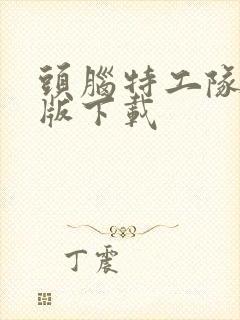 頭腦特工隊
版下載
丁震